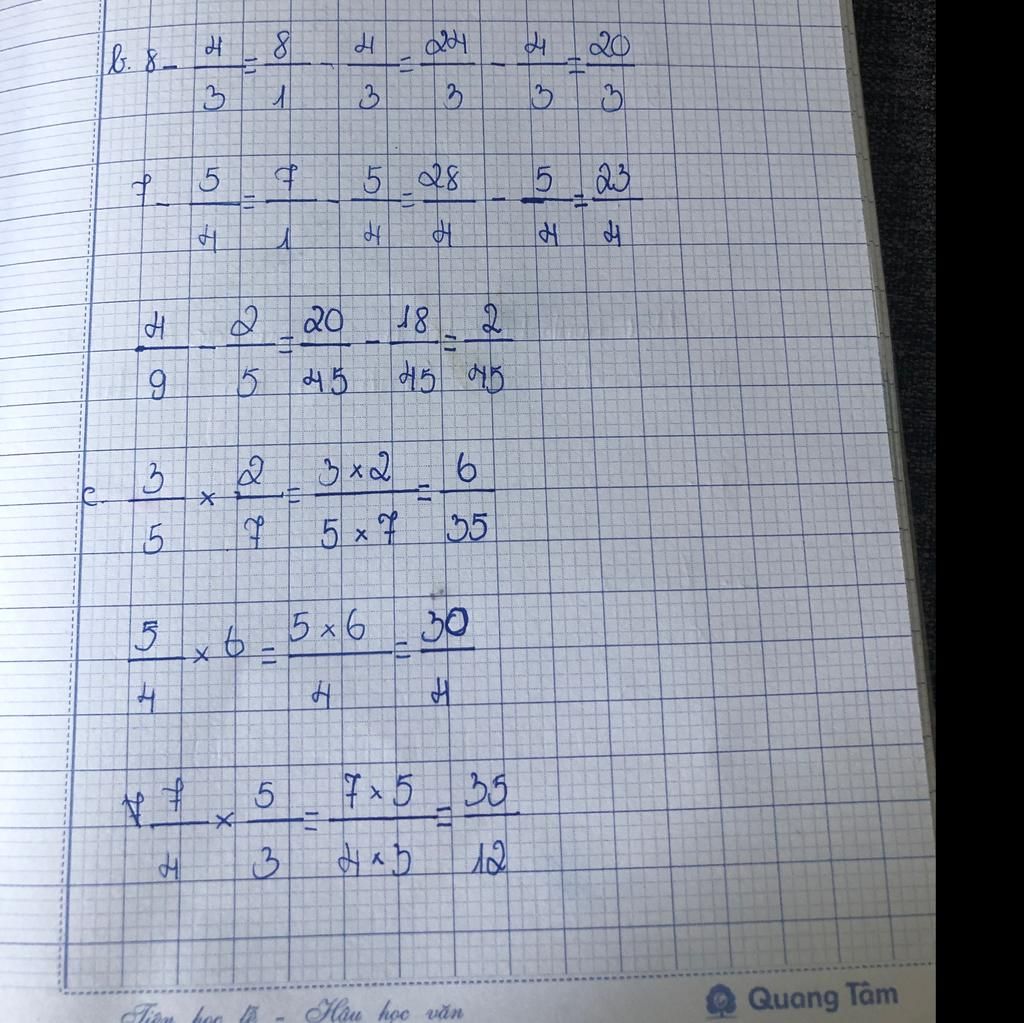 b. 8 - 4/3 = 8/1 - 4/3 = 24/3 - 4/3 = 20/3
7 - 5/4 = 7/1 - 5/4 = 28/4 - 5/4 = 23/4
4/9 - 2/5 = 20/45 - 18/45 = 2/45
c. 3/5 × 2/7 = 3 × 2/5 × 7 = 6/35
5/4 × 6 = 5 × 6/4 = 30/4
7/4 × 5/3 = 7 × 5/4 × 3 = 35/12
Tiên học lễ - Hậu học văn
Quang Tâm